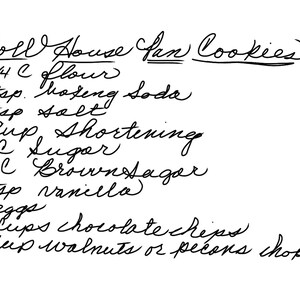 oll House Pan Cookies
4 C flour
tsp. baking Soda
tsp salt
cup Shortening
C Sugar
C Brown Sugar
tsp vanilla
eggs
cups chocolate chips
cup walnuts or pecans chop